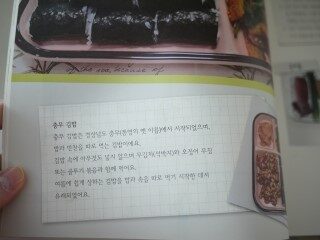 the sea, because of
충무 김밥
충무 김밥은 경상남도 충무(통영의 옛 이름)에서 시작되었으며,
밥과 반찬을 따로 먹는 김밥이에요.
김밥 속에 아무것도 넣지 않으며 무김치(석박지)와 오징어 무침
또는 꼴뚜기 볶음과 함께 먹어요.
여름에 쉽게 상하는 김밥을 밥과 속을 따로 먹기 시작한 데서
유래되었어요.